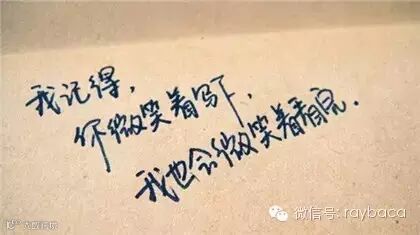 我记得，
你微笑着写下，
我也会微笑着看完.
微信号: raybaca